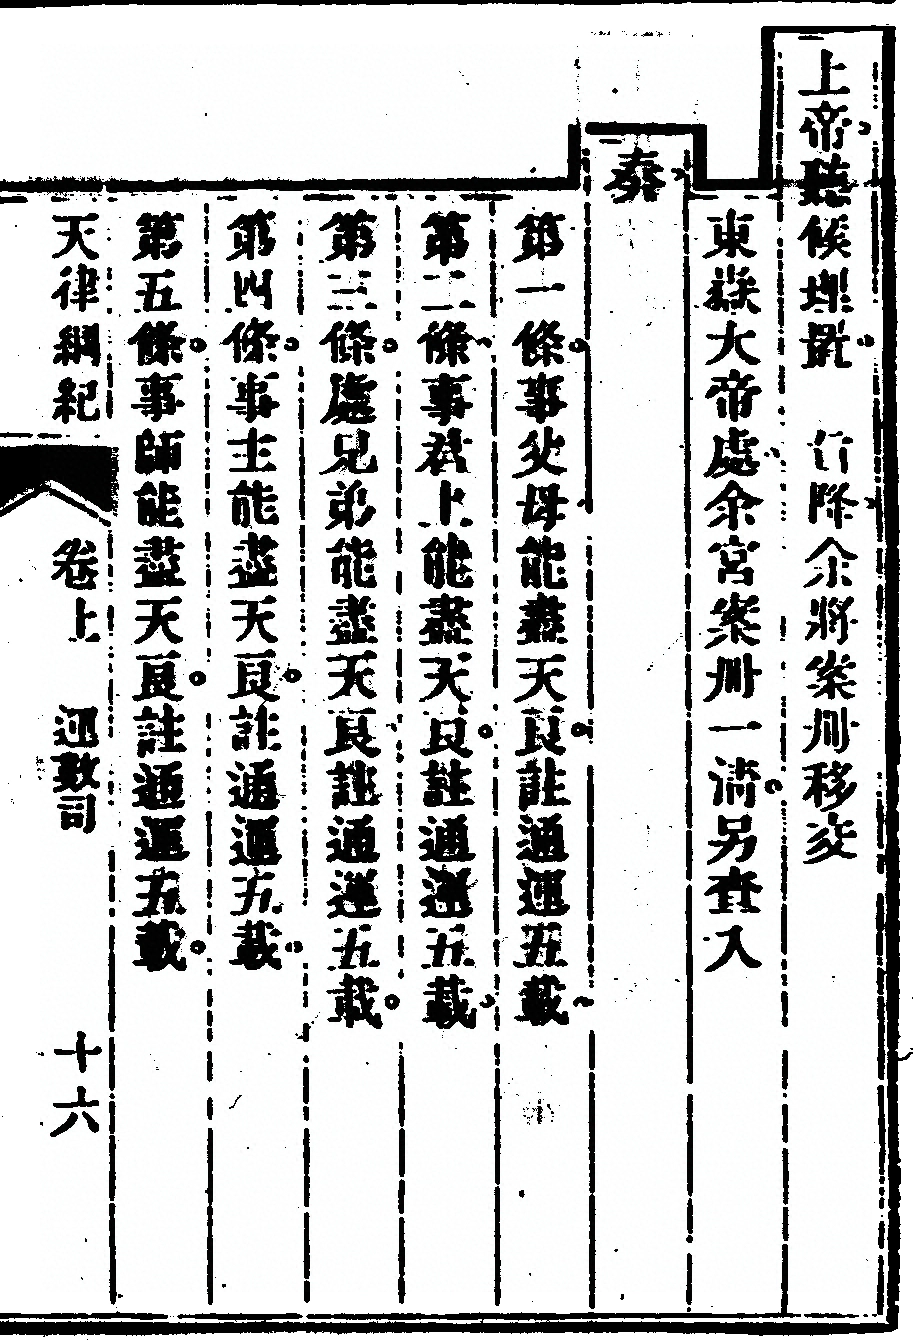 上帝聽候 降余將案卌移交
東嶽大帝處余宮案卌一淌另查入
奏
第一條事父母能盡天良註通運五載
第二條事君上能盡天良註通運五載
第三條處兄弟能盡天良註通運五載
第四條事主能盡天良註通運五載
第五條事師能盡天良註通運五載
天律綱紀 卷上 運數司 十六